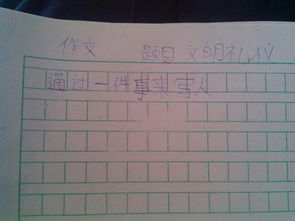 作文 题目 文明礼仪
通过一件事来写人